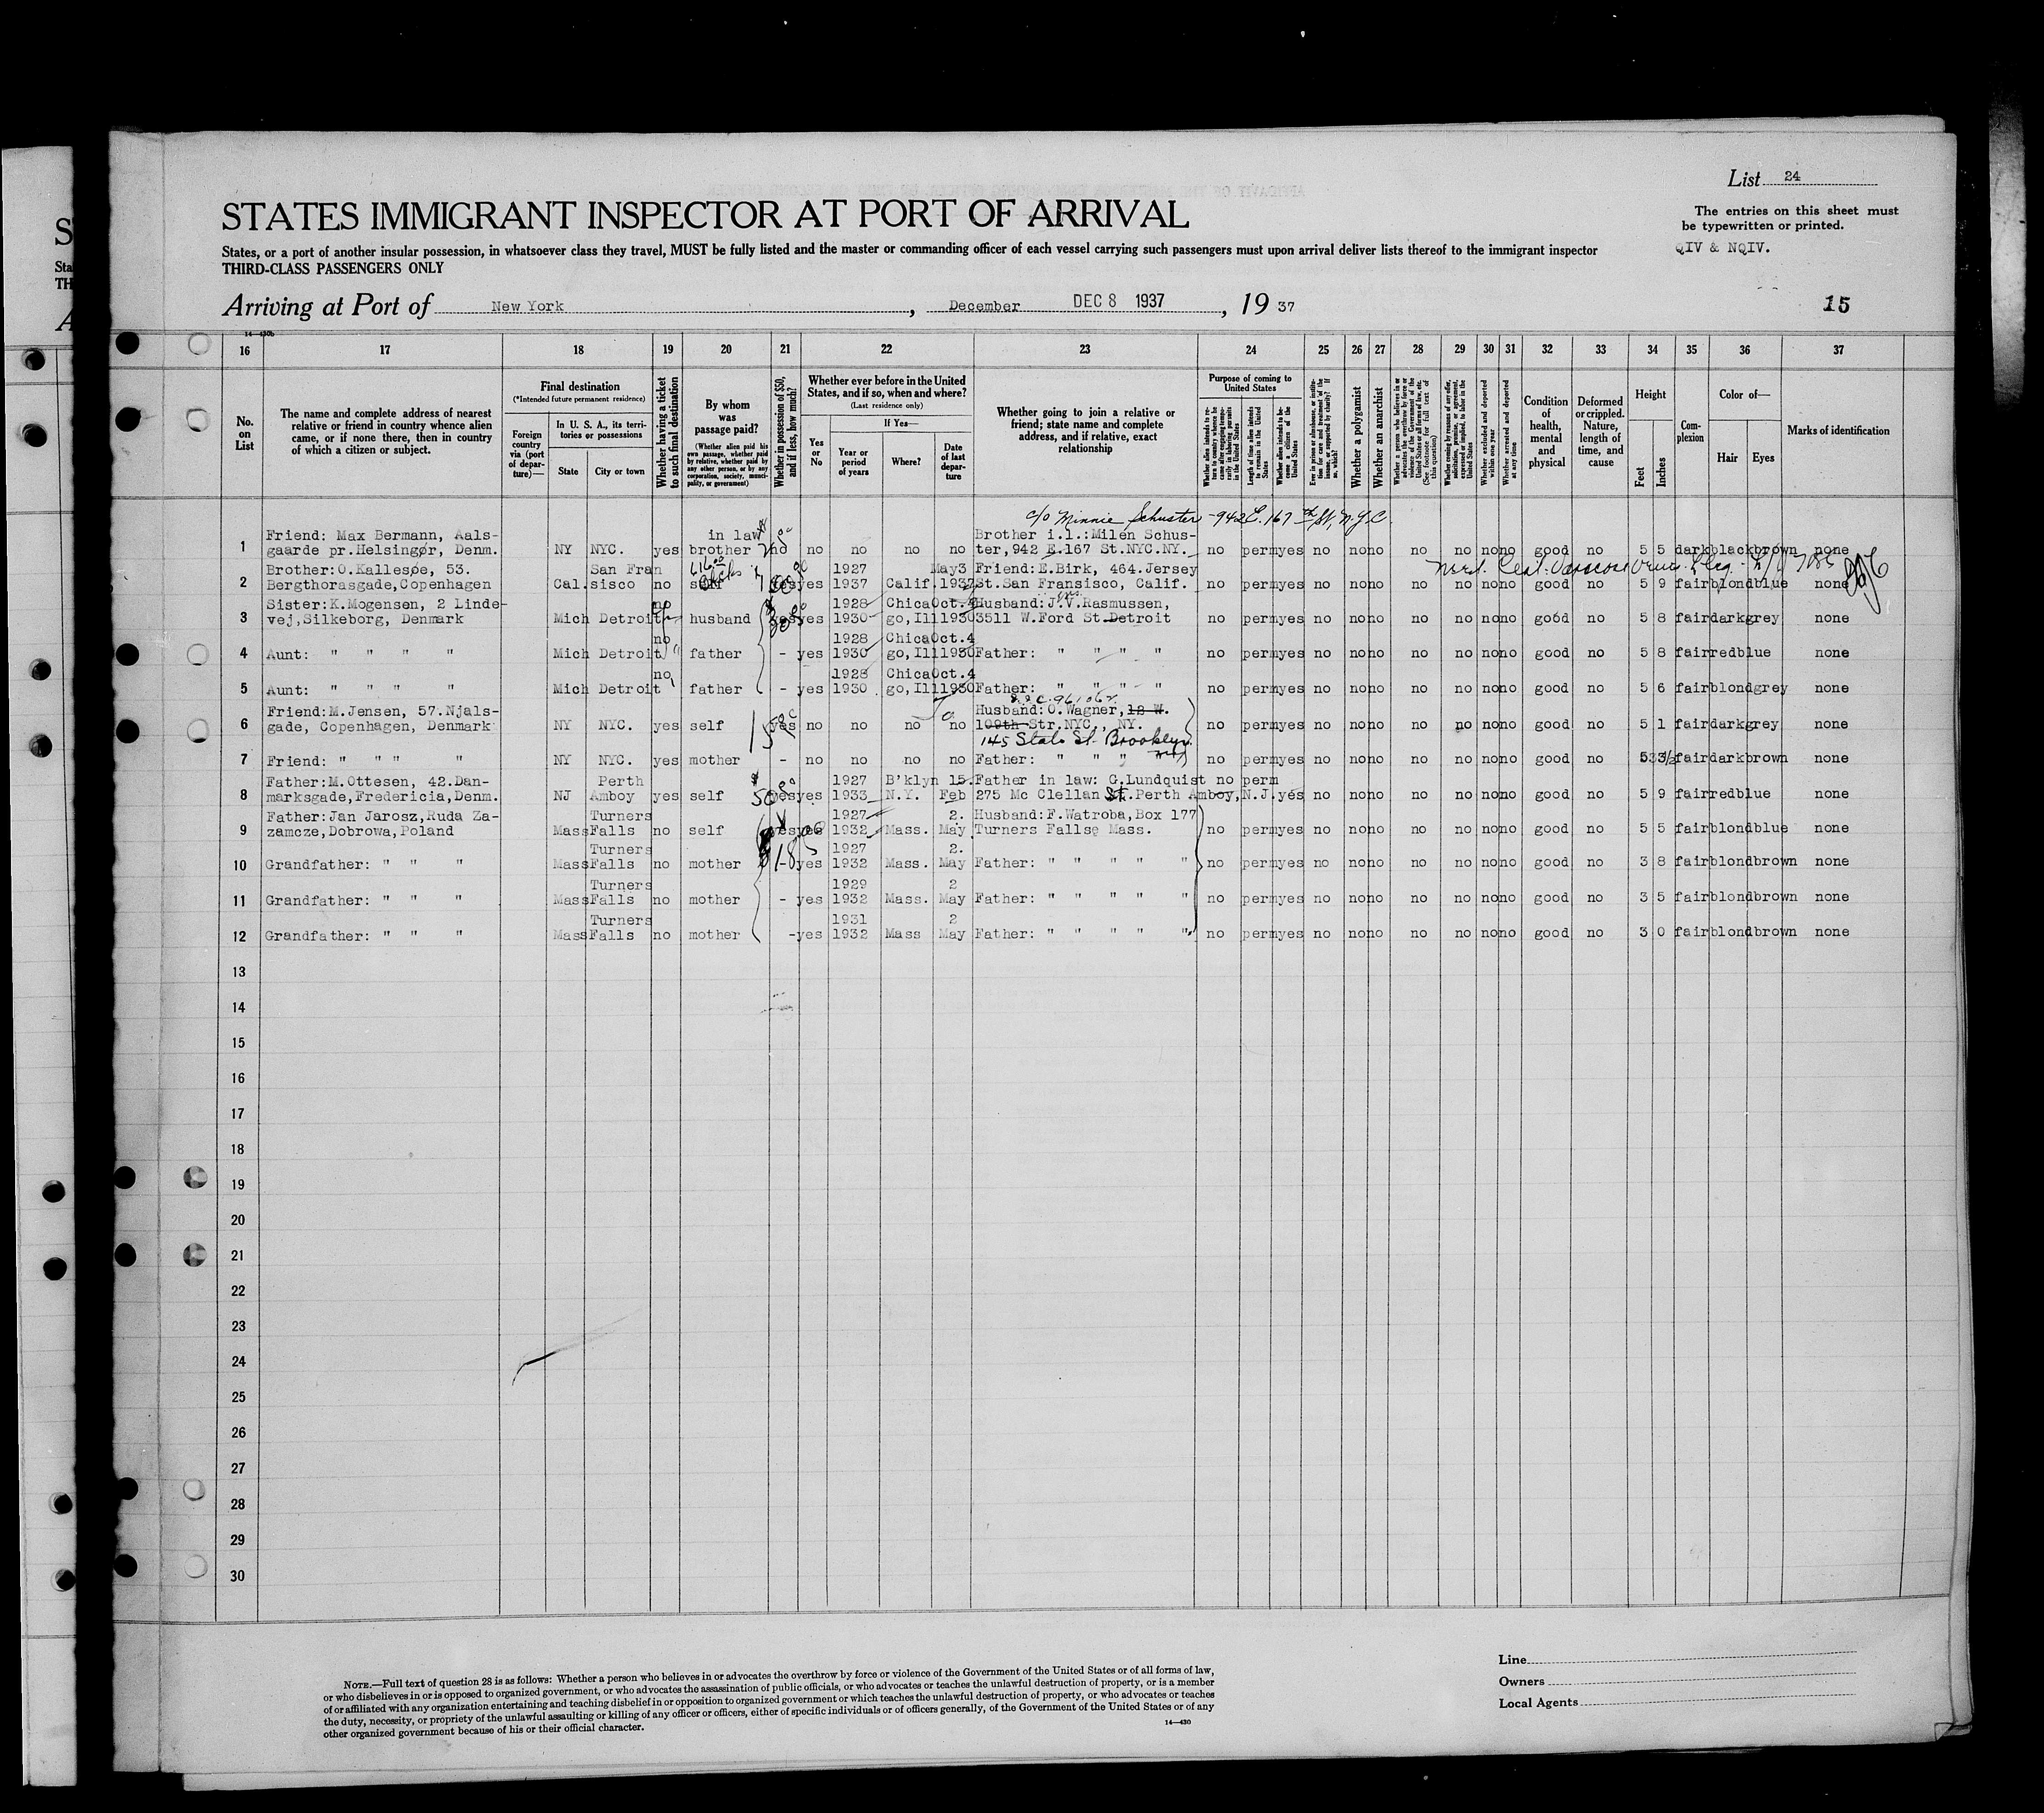 List 24
STATES IMMIGRANT INSPECTOR AT PORT OF ARRIVAL
The entries on this sheet must
be typewritten or printed.
States, or a port of another insular possession, in whatsoever class they travel, MUST be fully listed and the master or commanding officer of each vessel carrying such passengers must upon arrival deliver lists thereof to the immigrant inspector
QIV & NQIV.
THIRD-CLASS PASSENGERS ONLY
Arriving at Port of New York, December DEC 8 1937, 19 37
15
16 17 18 19 20 21 22 23 24 25 26 27 28 29 30 31 32 33 34 35 36 37
No. on List
The name and complete address of nearest relative or friend in country whence alien came, or if none there, then in country of which a citizen or subject.
Final destination
(*Intended future permanent residence)
Foreign country via (port of departure)—
In U. S. A., its territories or possessions
State
City or town
Whether having a ticket to such final destination
By whom was passage paid?
(Whether alien paid his own passage, whether paid by relative, whether paid by any other person, or by any corporation, society, municipality, or government)
Whether in possession of $50, and if less, how much?
Whether ever before in the United States, and if so, when and where?
(Last residence only)
Yes or No
If Yes—
Year or period of years
Where?
Date of last departure
Whether going to join a relative or friend; state name and complete address, and if relative, exact relationship
Purpose of coming to United States
Length of time alien intends to remain in the United States
Whether alien intends to become a citizen of the United States
Whether a polygamist
Whether an anarchist
(See footnote for full text of this question)
Whether arrested and deported at any time
Condition of health, mental and physical
Deformed or crippled. Nature, length of time, and cause
Height
Feet
Inches
Complexion
Color of—
Hair
Eyes
Marks of identification
c/o Minnie Schuster - 942 E. 167th St, N.Y.C.
1 Friend: Max Bermann, Aals- in law Brother i.l.:Milen Schus-
gaarde pr.Helsingør, Denm. NY NYC. yes brother no no no no ter,942 E.167 St.NYC.NY. no perm yes no no no no no no no good no 5 5 dark black brown none
2 Brother:O.Kallesøe, 53. San Fran 1927 May3 Friend:E.Birk, 464.Jersey
Bergthorasgade,Copenhagen Cal. sisco no self yes 1937 Calif. 1937 St.San Fransisco, Calif. no perm yes no no no no no no no good no 5 9 fair blond blue none
3 Sister:K.Mogensen, 2 Linde- no 1928 Chica Oct.4 Husband:J.V.Rasmussen,
vej,Silkeborg, Denmark Mich Detroit husband yes yes 1930 go,Ill 1930 3511 W.Ford St.Detroit no perm yes no no no no no no no good no 5 8 fair dark grey none
no 1928 Chica Oct.4
4 Aunt: " " " " Mich Detroit father - yes 1930 go,Ill 1930 Father: " " " " no perm yes no no no no no no no good no 5 8 fair red blue none
no 1928 Chica Oct.4
5 Aunt: " " " " Mich Detroit father - yes 1930 go,Ill 1930 Father: " " " " no perm yes no no no no no no no good no 5 6 fair blond grey none
6 Friend:M.Jensen, 57.Njals- Husband:O.Wagner,12 W.
gade, Copenhagen, Denmark NY NYC. yes self yes no no no no 109th Str.NYC, NY. no perm yes no no no no no no no good no 5 1 fair dark grey none
145 State St. Brooklyn
7 Friend: " " " " NY NYC. yes mother - no no no no Father: " " " no perm yes no no no no no no no good no fair dark brown none
8 Father:M.Ottesen, 42.Dan- Perth 1927 B'klyn 15. Father in law: G.Lundquist no perm
marksgade,Fredericia,Denm. NJ Amboy yes self 50 yes yes 1933 N.Y. Feb 275 Mc Clellan St.Perth Amboy,N.J. yes no no no no no no no good no 5 9 fair red blue none
9 Father:Jan Jarosz,Ruda Za- Turners 1927 2. Husband:F.Watroba,Box 177
zamcze,Dobrowa,Poland Mass Falls no self yes yes 1932 Mass. May Turners Falls, Mass. no perm yes no no no no no no no good no 5 5 fair blond blue none
Turners 1927 2.
10 Grandfather: " " " Mass Falls no mother yes 1932 Mass. May Father: " " " " " no perm yes no no no no no no no good no 3 8 fair blond brown none
Turners 1929 2
11 Grandfather: " " " Mass Falls no mother - yes 1932 Mass. May Father: " " " " " no perm yes no no no no no no no good no 3 5 fair blond brown none
Turners 1931 2
12 Grandfather: " " " Mass Falls no mother - yes 1932 Mass May Father: " " " " " no perm yes no no no no no no no good no 3 0 fair blond brown none
13
14
15
16
17
18
19
20
21
22
23
24
25
26
27
28
29
30
NOTE.—Full text of question 28 is as follows: Whether a person who believes in or advocates the overthrow by force or violence of the Government of the United States or of all forms of law,
or who disbelieves in or is opposed to organized government, or who advocates the assassination of public officials, or who advocates or teaches the unlawful destruction of property, or is a member
of or affiliated with any organization entertaining and teaching disbelief in or opposition to organized government or which teaches the unlawful destruction of property, or who advocates or teaches
the duty, necessity, or propriety of the unlawful assaulting or killing of any officer or officers, either of specific individuals or of officers generally, of the Government of the United States or of any
other organized government because of his or their official character.
14—430
Line
Owners
Local Agents